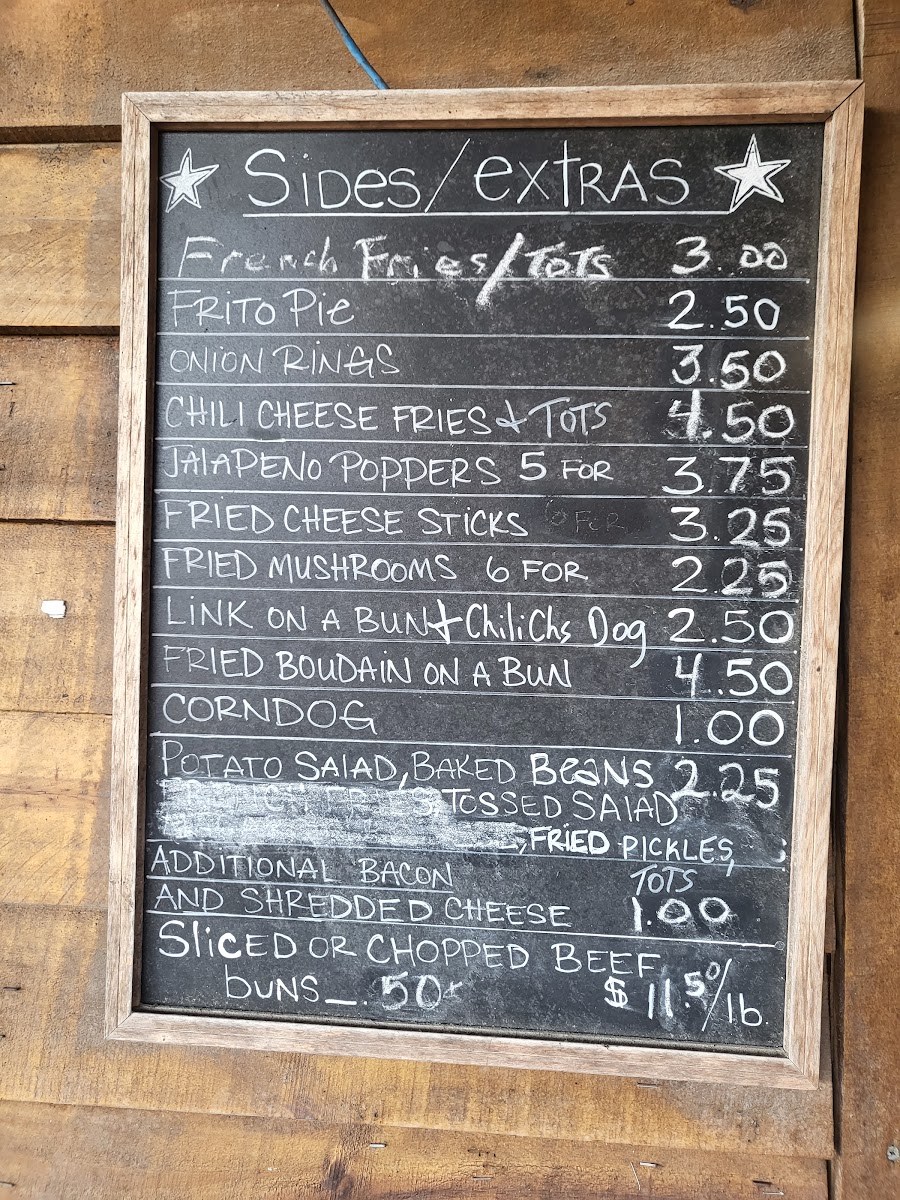 Sides/extras
French Fries/Tots 3.00
Frito Pie 2.50
Onion Rings 3.50
Chili Cheese Fries & Tots 4.50
Jalapeno Poppers 5 for 3.75
Fried Cheese Sticks 6 for 3.25
Fried Mushrooms 6 for 2.25
Link on a Bun + Chili Chs Dog 2.50
Fried Boudain on a Bun 4.50
Corndog 1.00
Potato Salad, Baked Beans 2.25
Tossed Salad
, Fried Pickles,
Tots
Additional Bacon
and Shredded Cheese 1.00
Sliced or Chopped Beef
buns_.50¢ $11.50/lb.